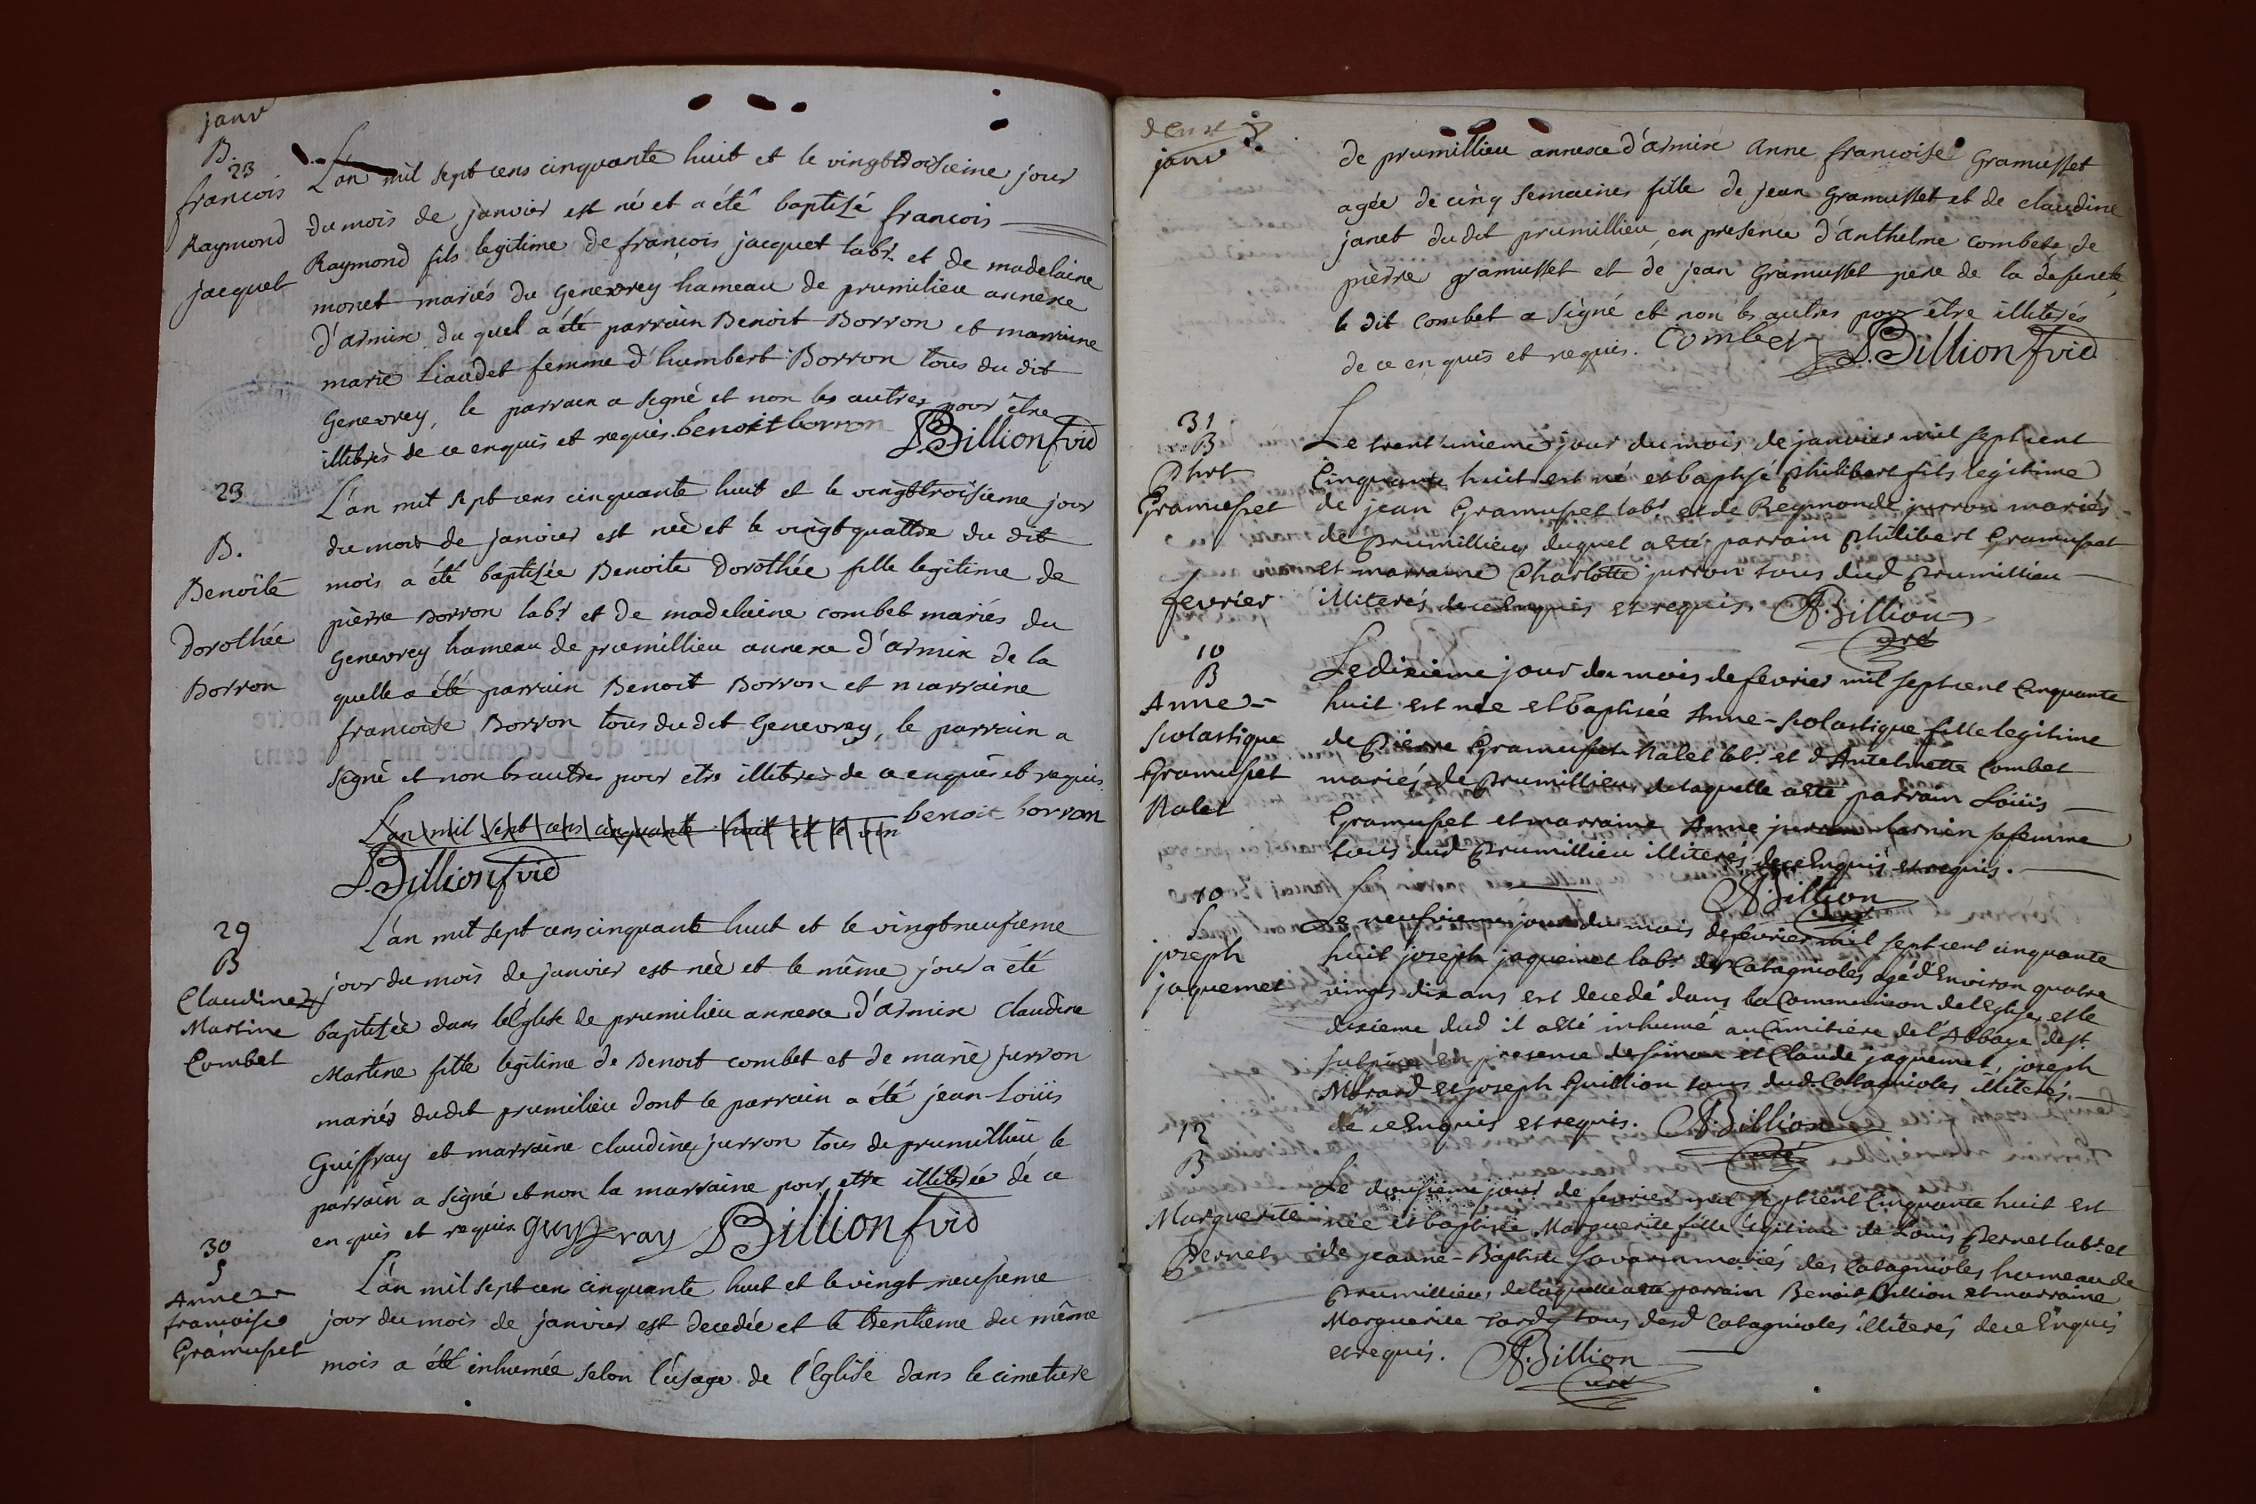 janv
B.
23
francois
Raymond
jacquet
L'an mil sept cens cinquante huit et le vingttroisieme jour
du mois de janvier est né et a été baptisé francois
Raymond fils legitime de françois jacquet labr. et de madelaine
monet mariés du Genevrey hameau de prumilieu annexe
d'armix du quel a été parrain Benoit Borron et marraine
marie Liaudet femme d'humbert Borron tous du dit
Genevrey, le parrain a signé et non les autres pour être
illiterés de ce enquis et requis. benoit borron D. Billion fvic
23
B.
Benoite
Dorothée
Borron
L'an mil sept cens cinquante huit et le vingttroisieme jour
du mois de janvier est née et le vingtquattre du dit
mois a été baptisée Benoite Dorothée fille legitime de
pierre Borron labr et de madelaine combet mariés du
Genevrey hameau de prumillieu annexe d'armix de la
quelle a été parrain Benoit Borron et marraine
francoise Borron tous du dit Genevrey, le parrain a
signé et non les autres pour etre illiterés de ce enquis et requis.
benoit borron
L'an mil sept cens cinquante huit et le vin
D. Billion fvic
29
B
Claudine
Martine
Combet
L'an mil sept cens cinquante huit et le vingtneufieme
jour du mois de janvier est née et le même jour a été
baptisée dans léglise de prumilieu annexe d'armix Claudine
Martine fille legitime de Benoit combet et de marie jurron
mariés dudit prumilieu dont le parrain a été jean Loüis
Guiffray et marraine claudine jurron tous de prumillieu, le
parrain a signé et non la marraine pour etre illiterée dé ce
enquis et requis guyffray D. Billion fvic
30
S
Anne
francoise
Gramusset
L'an mil sept cen cinquante huit et le vingt neufieme
jour du mois de janvier est decedée et le trentieme du même
mois a été inhumée selon l'usage de l'église dans le cimetiere
janv
de prumillieu annexe d'armix Anne francoise Gramusset
agée de cinq semaines fille de jean Gramusset et de claudine
janet dudit prumillieu, en presence d'anthelme combet de
pierre gramusset et de jean Gramusset pere de la defuncte,
le dit combet a signé et non les autres pour être illiterés
de ce enquis et requis. Combet D. Billion fvic
31
B
Phrt
Gramusset
Le trent'unieme jour du mois de janvier mil sept cent
Cinquante huit est né et baptisé Philibert fils legitime
de jean Gramusset labr et de Reymonde jurron mariés
de Prumillieu duquel a esté parrain Philibert Gramusset
et marraine Charlotte jurron tous dud Prumillieu
illiterés de ce Enquis et requis. A. Billion
curé
fevrier
10
B
Anne
Scolastique
Gramusset
Nalet
Le dixieme jour du mois de fevrier mil sept cent Cinquante
huit est née et baptisée Anne-Scolastique fille legitime
de Pierre Gramusset Nalet labr. et d'Antelmette Combet
mariés de Prumillieu delaquelle a esté parrain Loüis
Gramusset et marraine Anne jurron sa femme
tous dud Prumillieu illiterés de ce Enquis et requis.
A. Billion
curé
10
S
joseph
jaquemet
Le neufvieme jour du mois de fevrier mil sept cent cinquante
huit joseph jaquemet labr des Catagnioles agé d'Environ quatre
vingt dix ans est decedé dans la Communion de l'Eglise et le
dixieme dud il a esté inhumé au Cimitiere de l'Abbaye de st.
Sulpice en presence de Simon et Claude jaquemet, joseph
Morard et joseph Guillion tous dud Catagnioles illiterés
de ce Enquis et requis. A. Billion
curé
12
B
Marguerite
Pernet
Le douzieme jour de fevrier mil sept cent Cinquante huit est
née et baptisée Marguerite fille legitime de Louis Pernet labr. et
de jeanne-Baptiste Savarin mariés des Catagnioles hameau de
Prumillieu, delaquelle a esté parrain Benoit Billion et marraine
Marguerite Tardy tous desd Catagnioles illiterés de ce Enquis
et requis. A. Billion
curé